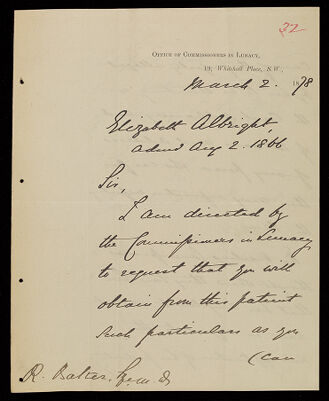 22
OFFICE OF COMMISSIONERS IN LUNACY,
19, Whitehall Place, S.W.,
March 2. 1878
Elizabeth Albright,
admd Aug 2. 1866
Sir,
I am directed by
the Commissioners in Lunacy
to request that you will
obtain from this patient
such particulars as you
(can
R. Baker, Esq. M.D.